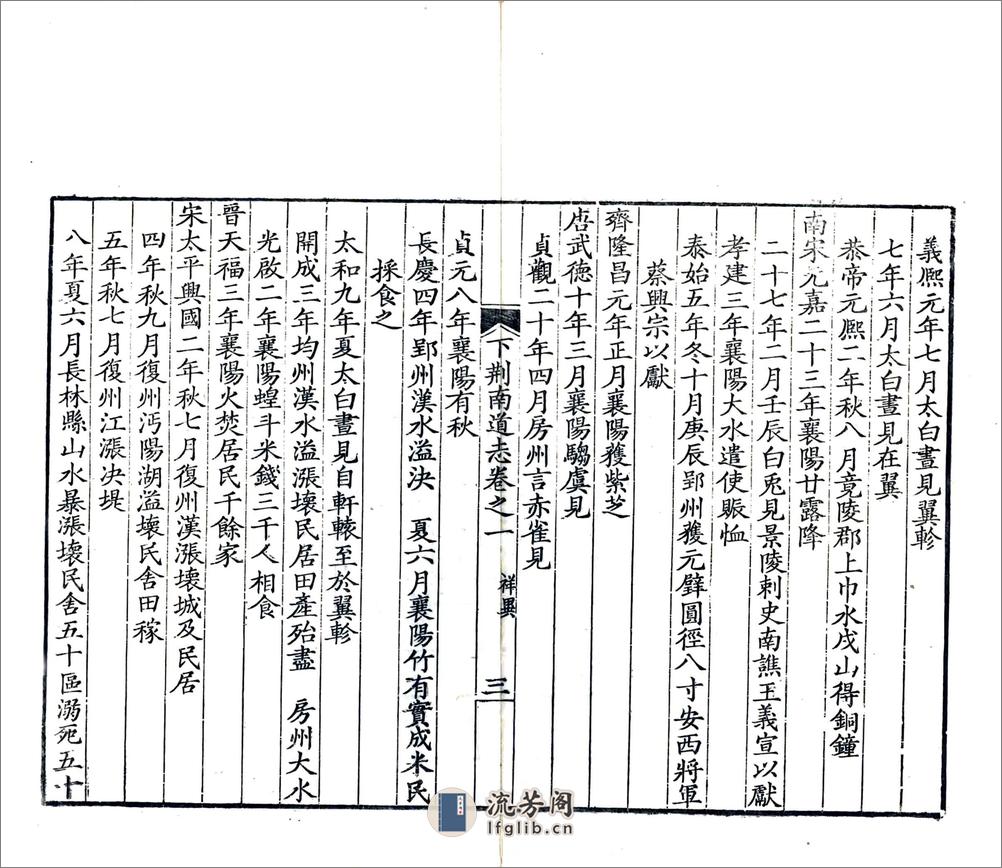 義熙元年七月太白晝見翼軫
七年六月太白晝見在翼
恭帝元熙二年秋八月竟陵郡上巾水戍山得銅鐘
南宋元嘉二十三年襄陽甘露降
二十七年二月壬辰白兎見景陵刺史南譙王義宣以獻
孝建三年襄陽大水遣使賑恤
泰始五年冬十月庚辰郢州獲元璧圓徑八寸安西將軍
蔡興宗以獻
齊隆昌元年正月襄陽獲紫芝
唐武德十年三月襄陽騶虞見
貞觀二十年四月房州言赤雀見
下荆南道志卷之一 祥異 三
貞元八年襄陽有秋
長慶四年郢州漢水溢決 夏六月襄陽竹有實成米民
採食之
太和九年夏太白晝見自軒轅至於翼軫
開成三年均州漢水溢漲壞民居田產殆盡 房州大水
光啟二年襄陽蝗斗米錢三千人相食
晉天福三年襄陽火焚居民千餘家
宋太平興國二年秋七月復州漢漲壞城及民居
四年秋九月復州沔陽湖溢壞民舍田稼
五年秋七月復州江漲决堤
八年夏六月長林縣山水暴漲壞民舍五十區溺死五十
流芳阁
lfglib.cn